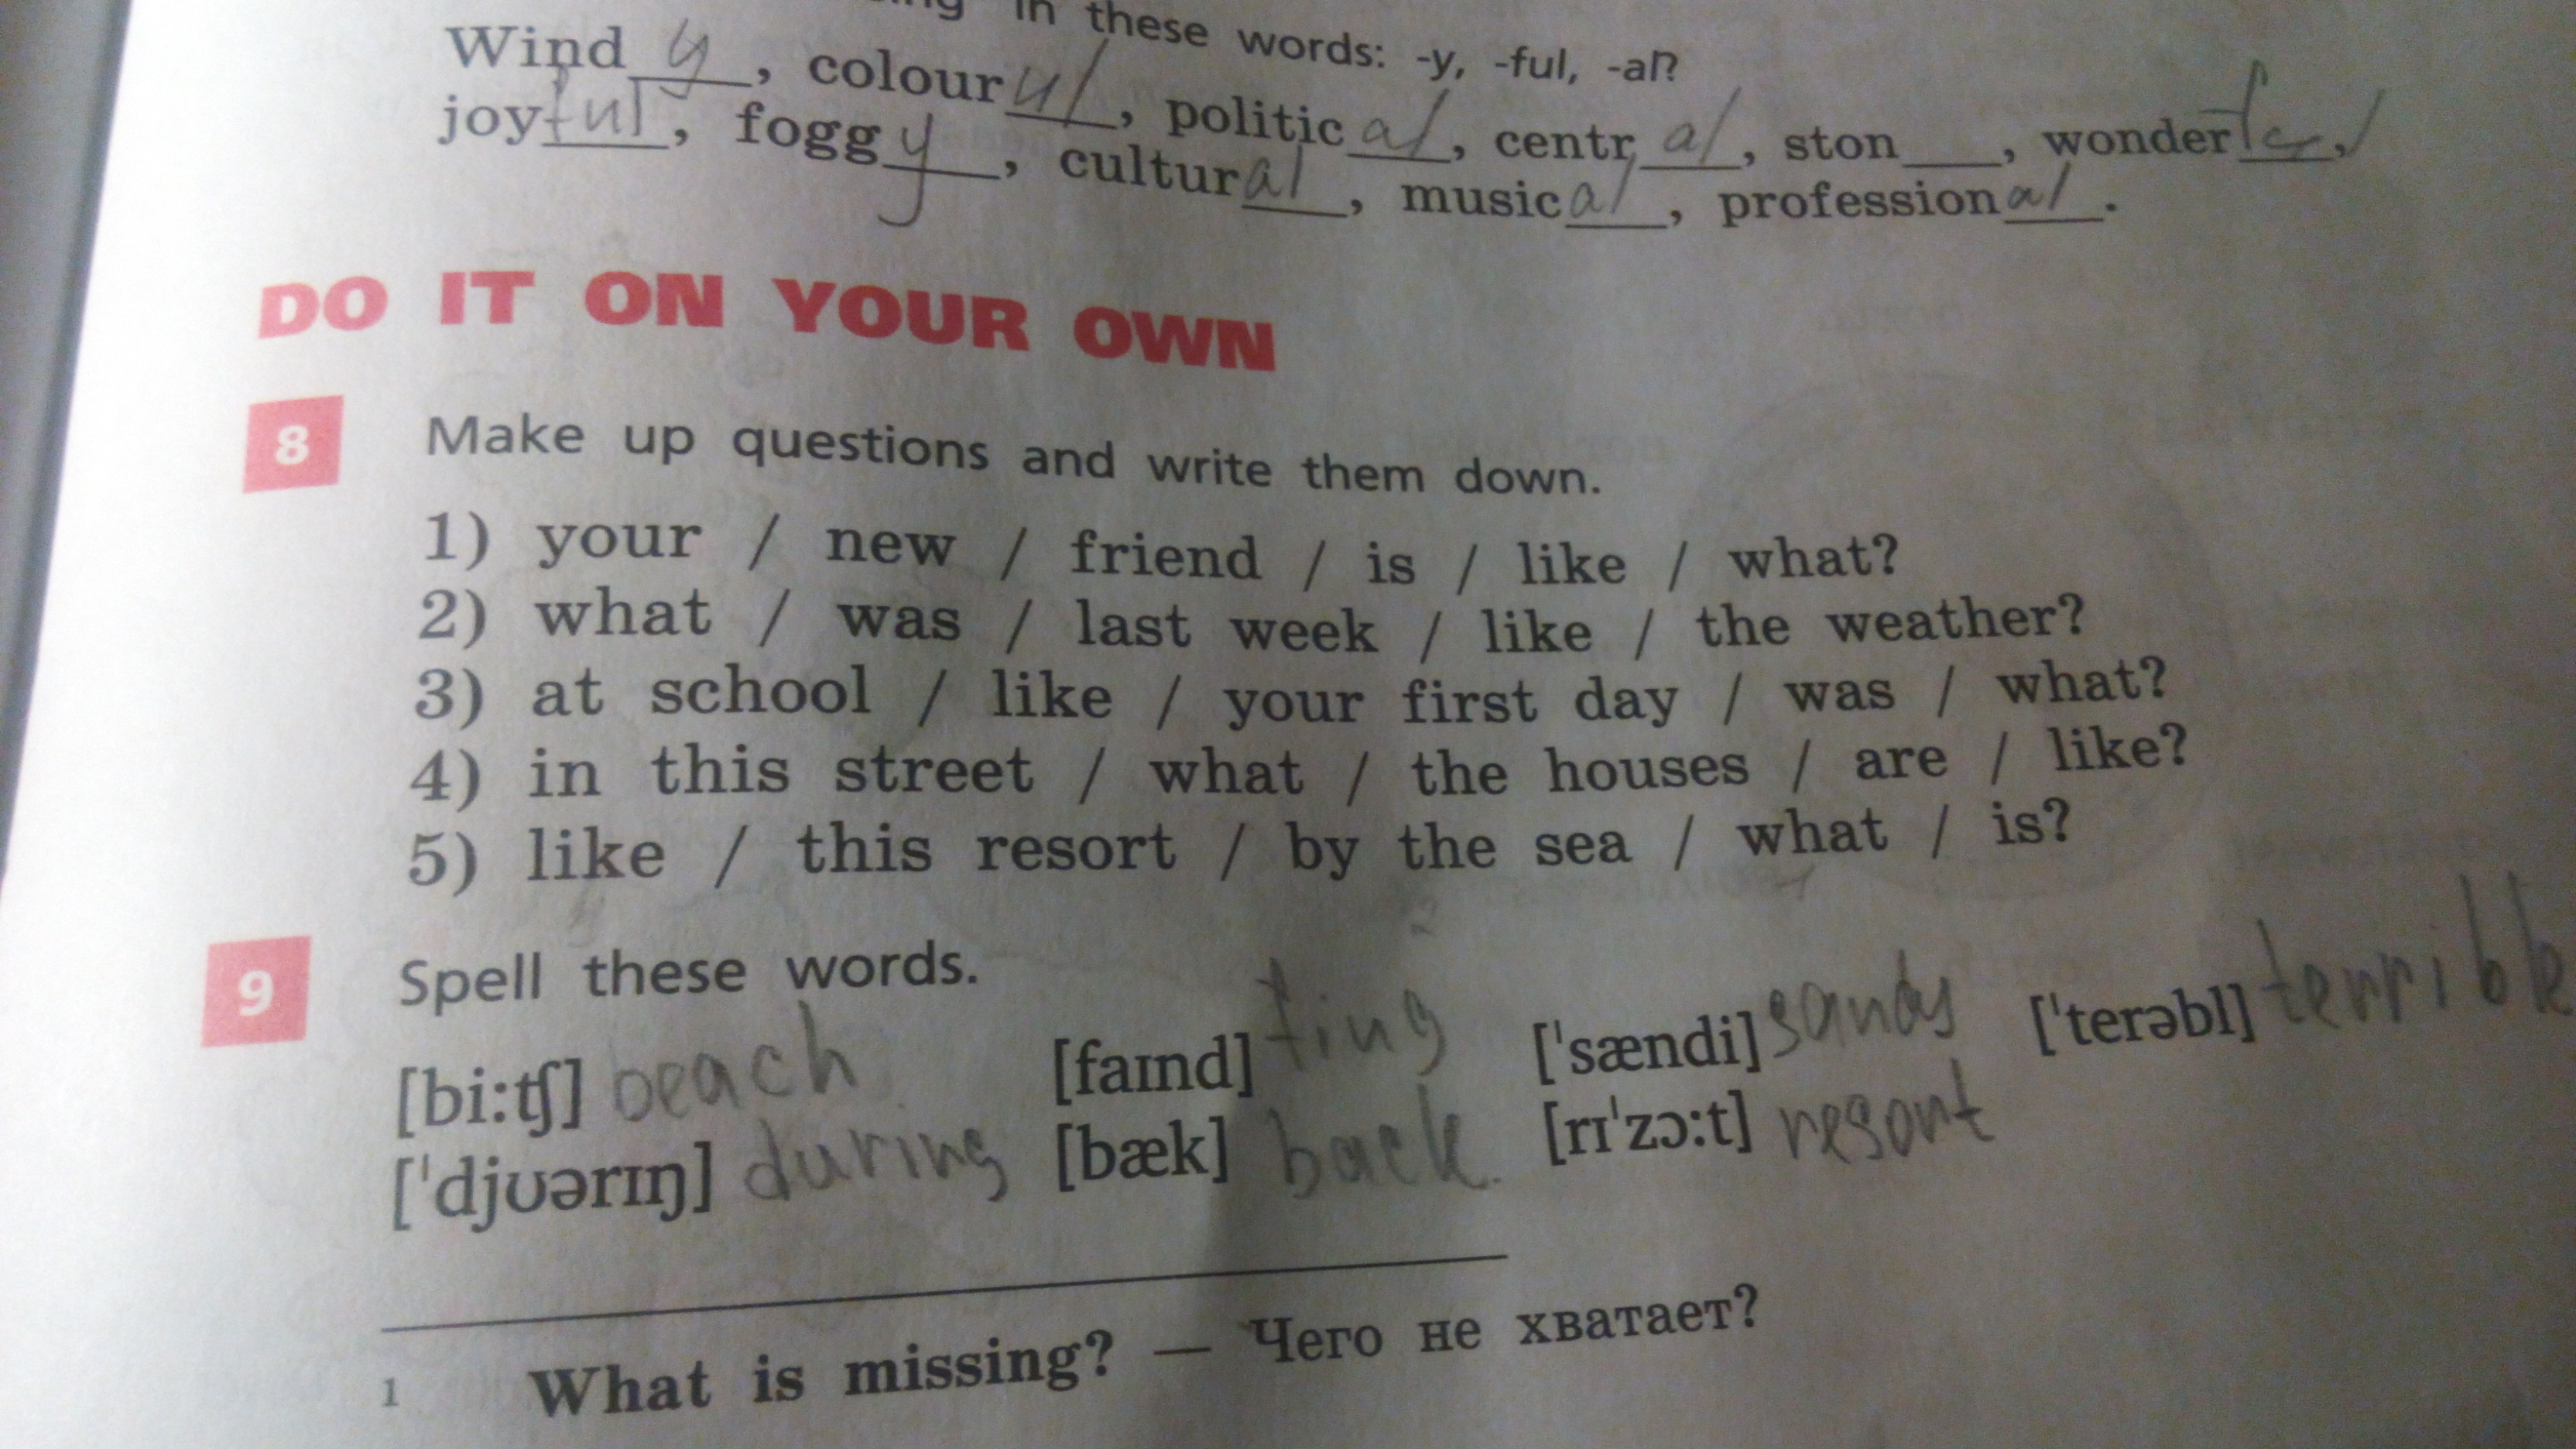 in these words: -y, -ful, -al?
Wind y, colour ul, political, central, ston___, wonderful,
joyful, foggy, cultural, musical, professional.
DO IT ON YOUR OWN
8 Make up questions and write them down.
1) your / new / friend / is / like / what?
2) what / was / last week / like / the weather?
3) at school / like / your first day / was / what?
4) in this street / what / the houses / are / like?
5) like / this resort / by the sea / what / is?
9 Spell these words.
[bi:ʧ] beach [faɪnd] ['sændi] ['terəbl] terrible
['djʊərɪŋ] during [bæk] back [rɪ'zɔ:t] resort
1 What is missing? — Чего не хватает?